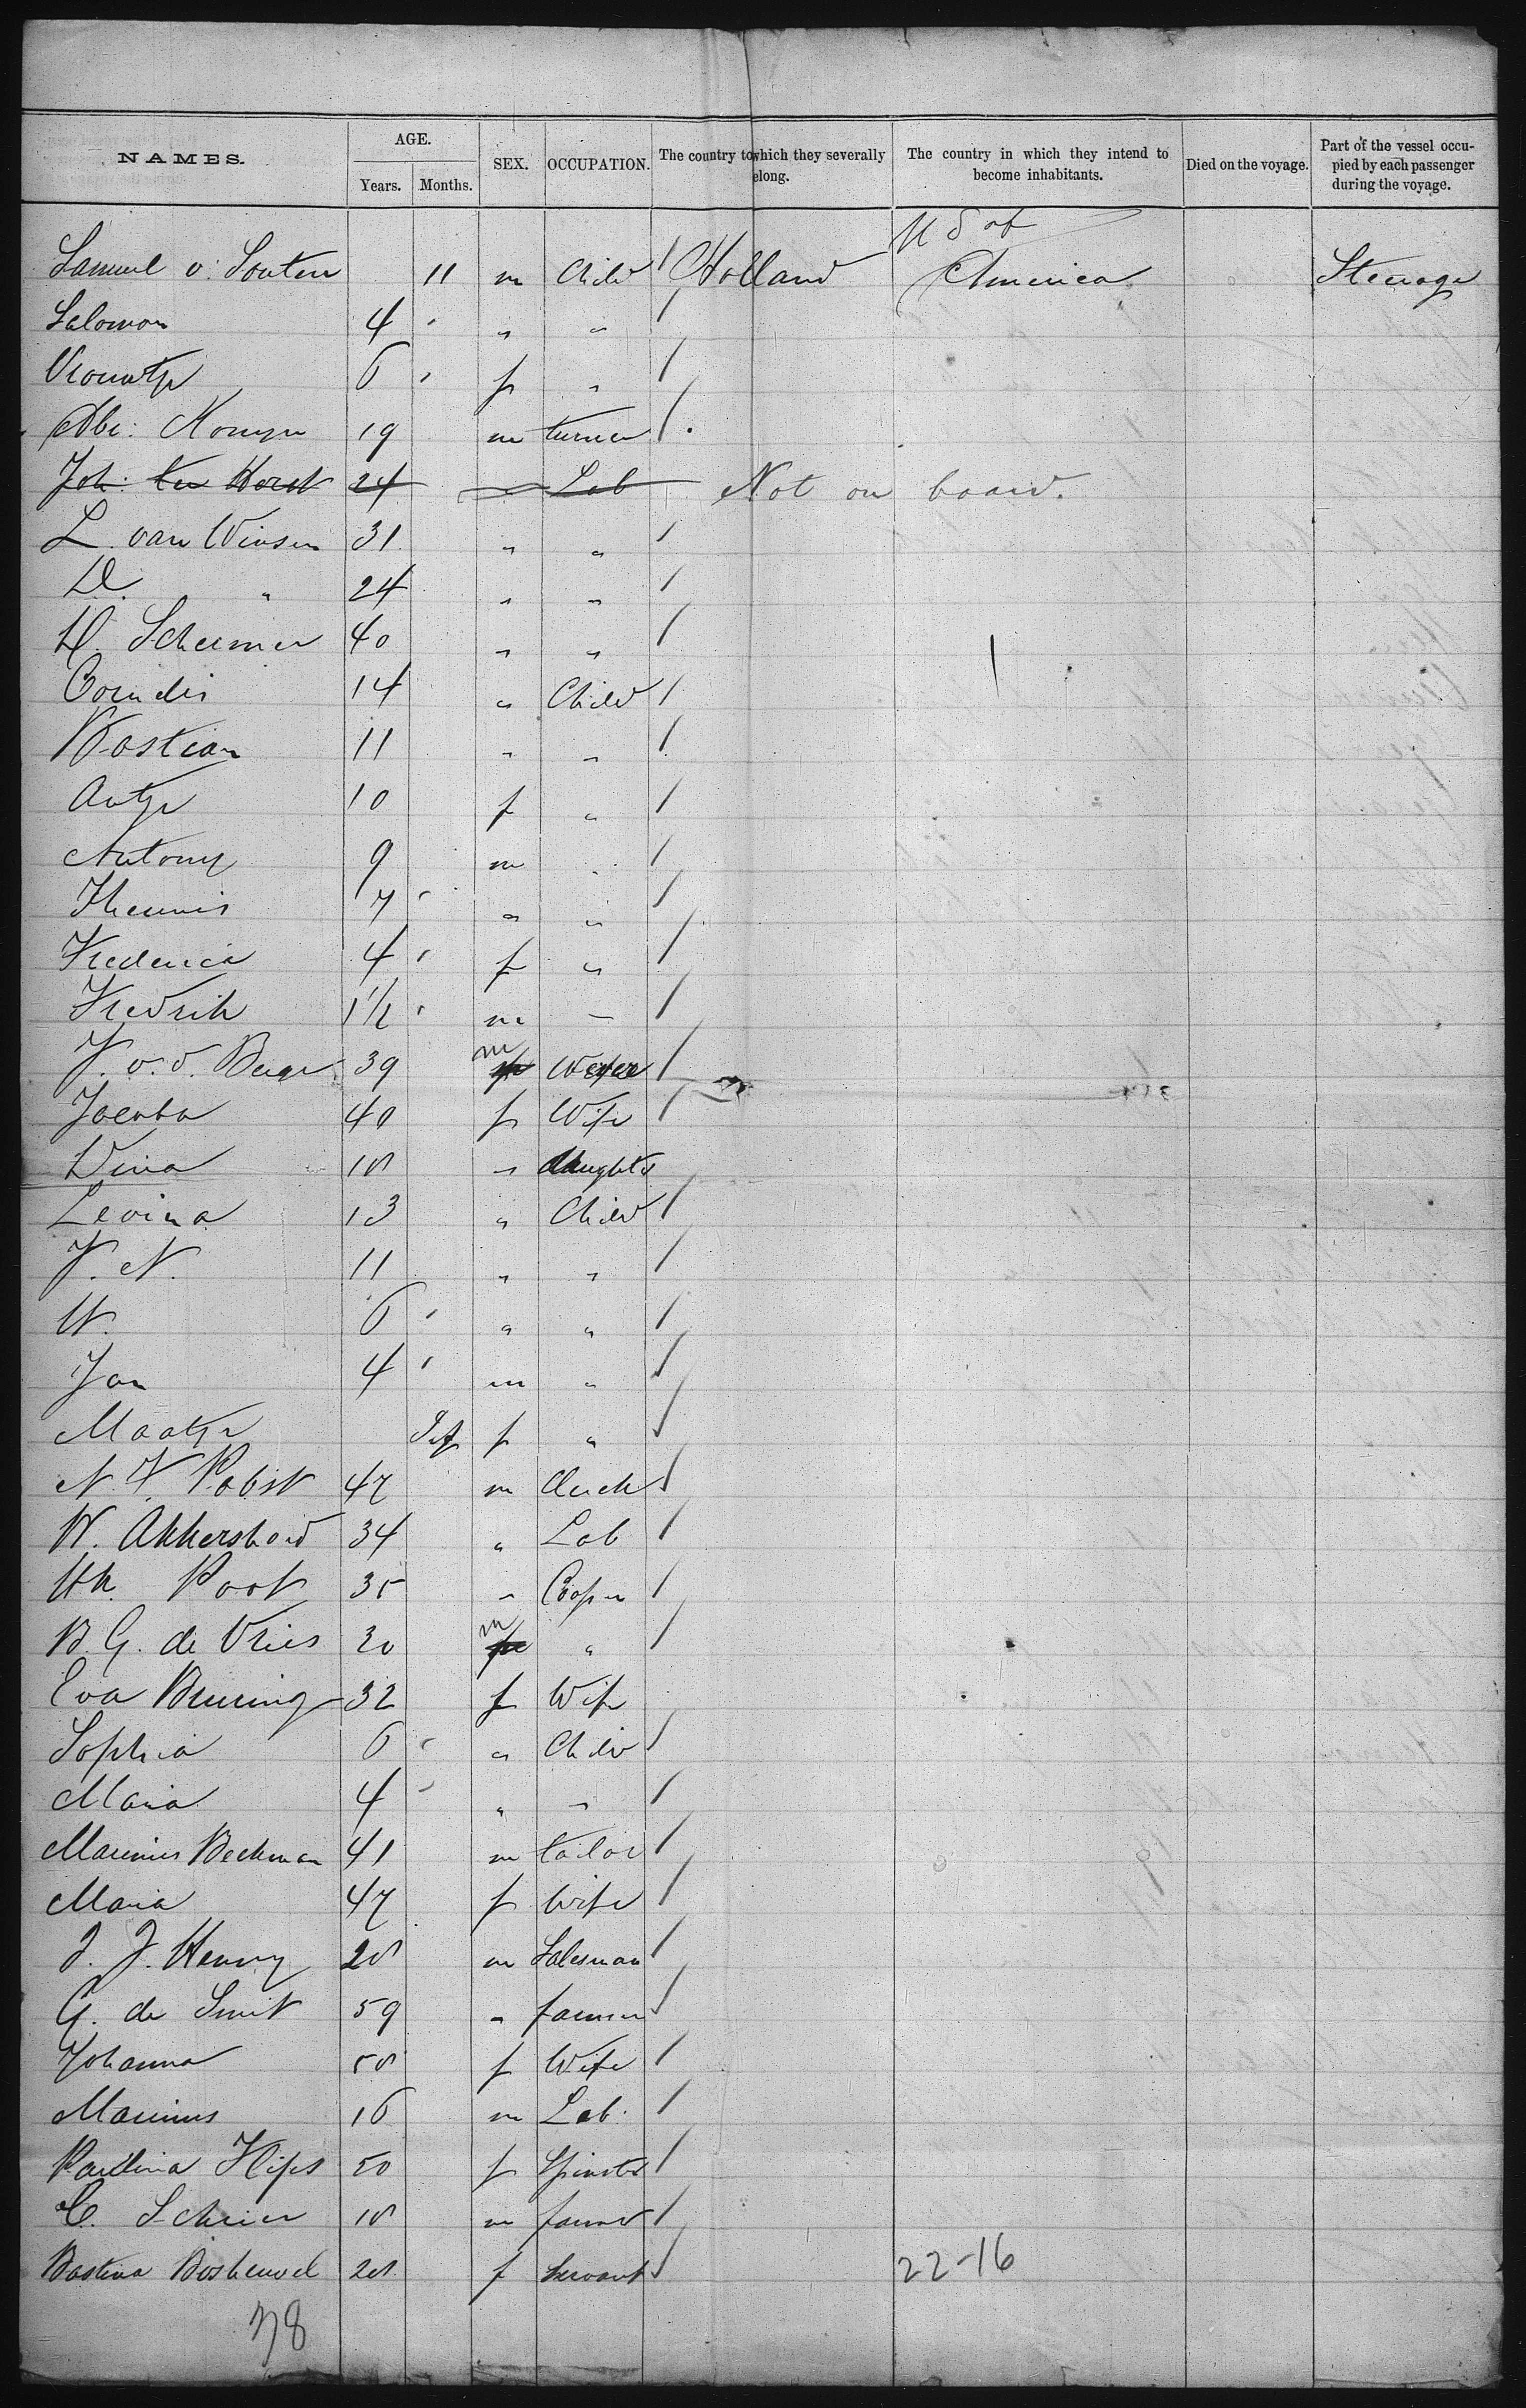 NAMES. AGE. SEX. OCCUPATION. The country to which they severally belong. The country in which they intend to become inhabitants. Died on the voyage. Part of the vessel occupied by each passenger during the voyage.
Years. Months.
U S of
Samuel v. Souten 11 m Child / Holland America Steerage
Salomon 4 " " /
Vrouwtje 6 f " /
Abr: Konyn 19 m turner /
Joh: ter Horst 24 " Lab Not on board.
L. van Winsen 31 " " /
D. " 24 " " /
H. Scheemer 40 " " /
Cornelis 14 " Child /
Bastian 11 " " /
Antje 10 f " /
Antony 9 m " /
Theunis 7 " " /
Frederica 4 f " /
Fredrik 1 1/2 m " /
J. v. d. Berge 39 m /
Jacoba 40 f Wife /
Dina 18 " daughter
Levina 13 " Child /
J. N. 11 " " /
W. 6 " " /
Jan 4 m " /
Maatje f " /
N. F. Pabst 47 m Clerk /
W. Akkershoid 34 " Lab /
Hk. Poot 35 " Cooper /
B. G. de Vries 30 m " /
Eva Bruring 32 f Wife
Sophia 6 " Child /
Maria 4 " " /
Marinus Beekman 41 m tailor /
Maria 47 f Wife /
J. J. Henny 28 m Salesman /
G. de Smit 59 " farmer /
Johanna 58 f Wife /
Marinus 16 m Lab. /
Paulina Flips 50 f Spinster /
C. Schrier 18 m farmer /
Bastina Boshewel 28 f Servant / 22-16
38